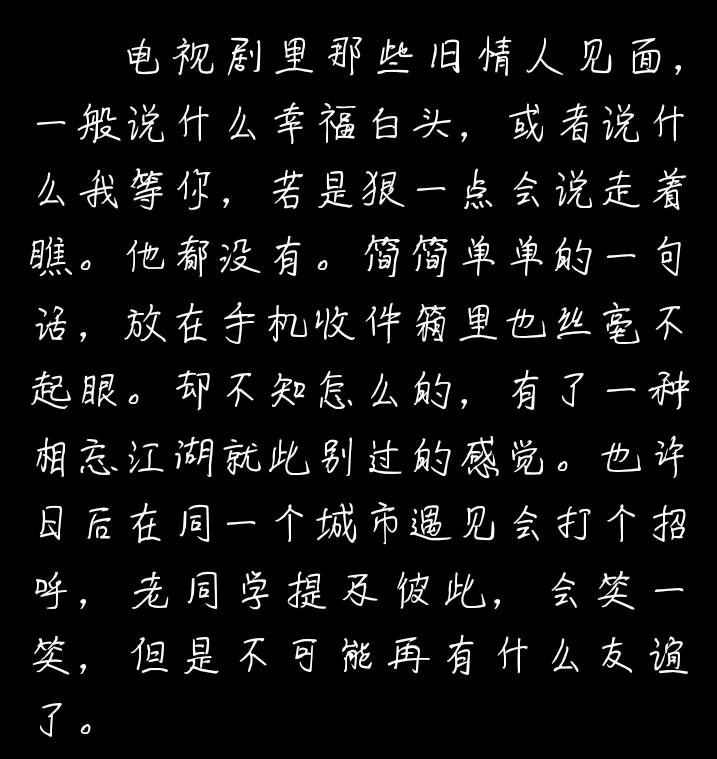 电视剧里那些旧情人见面，
一般说什么幸福白头，或者说什
么我等你，若是狠一点会说走着
瞧。他都没有。简简单单的一句
话，放在手机收件箱里也丝毫不
起眼。却不知怎么的，有了一种
相忘江湖就此别过的感觉。也许
日后在同一个城市遇见会打个招
呼，老同学提及彼此，会笑一
笑，但是不可能再有什么友谊
了。